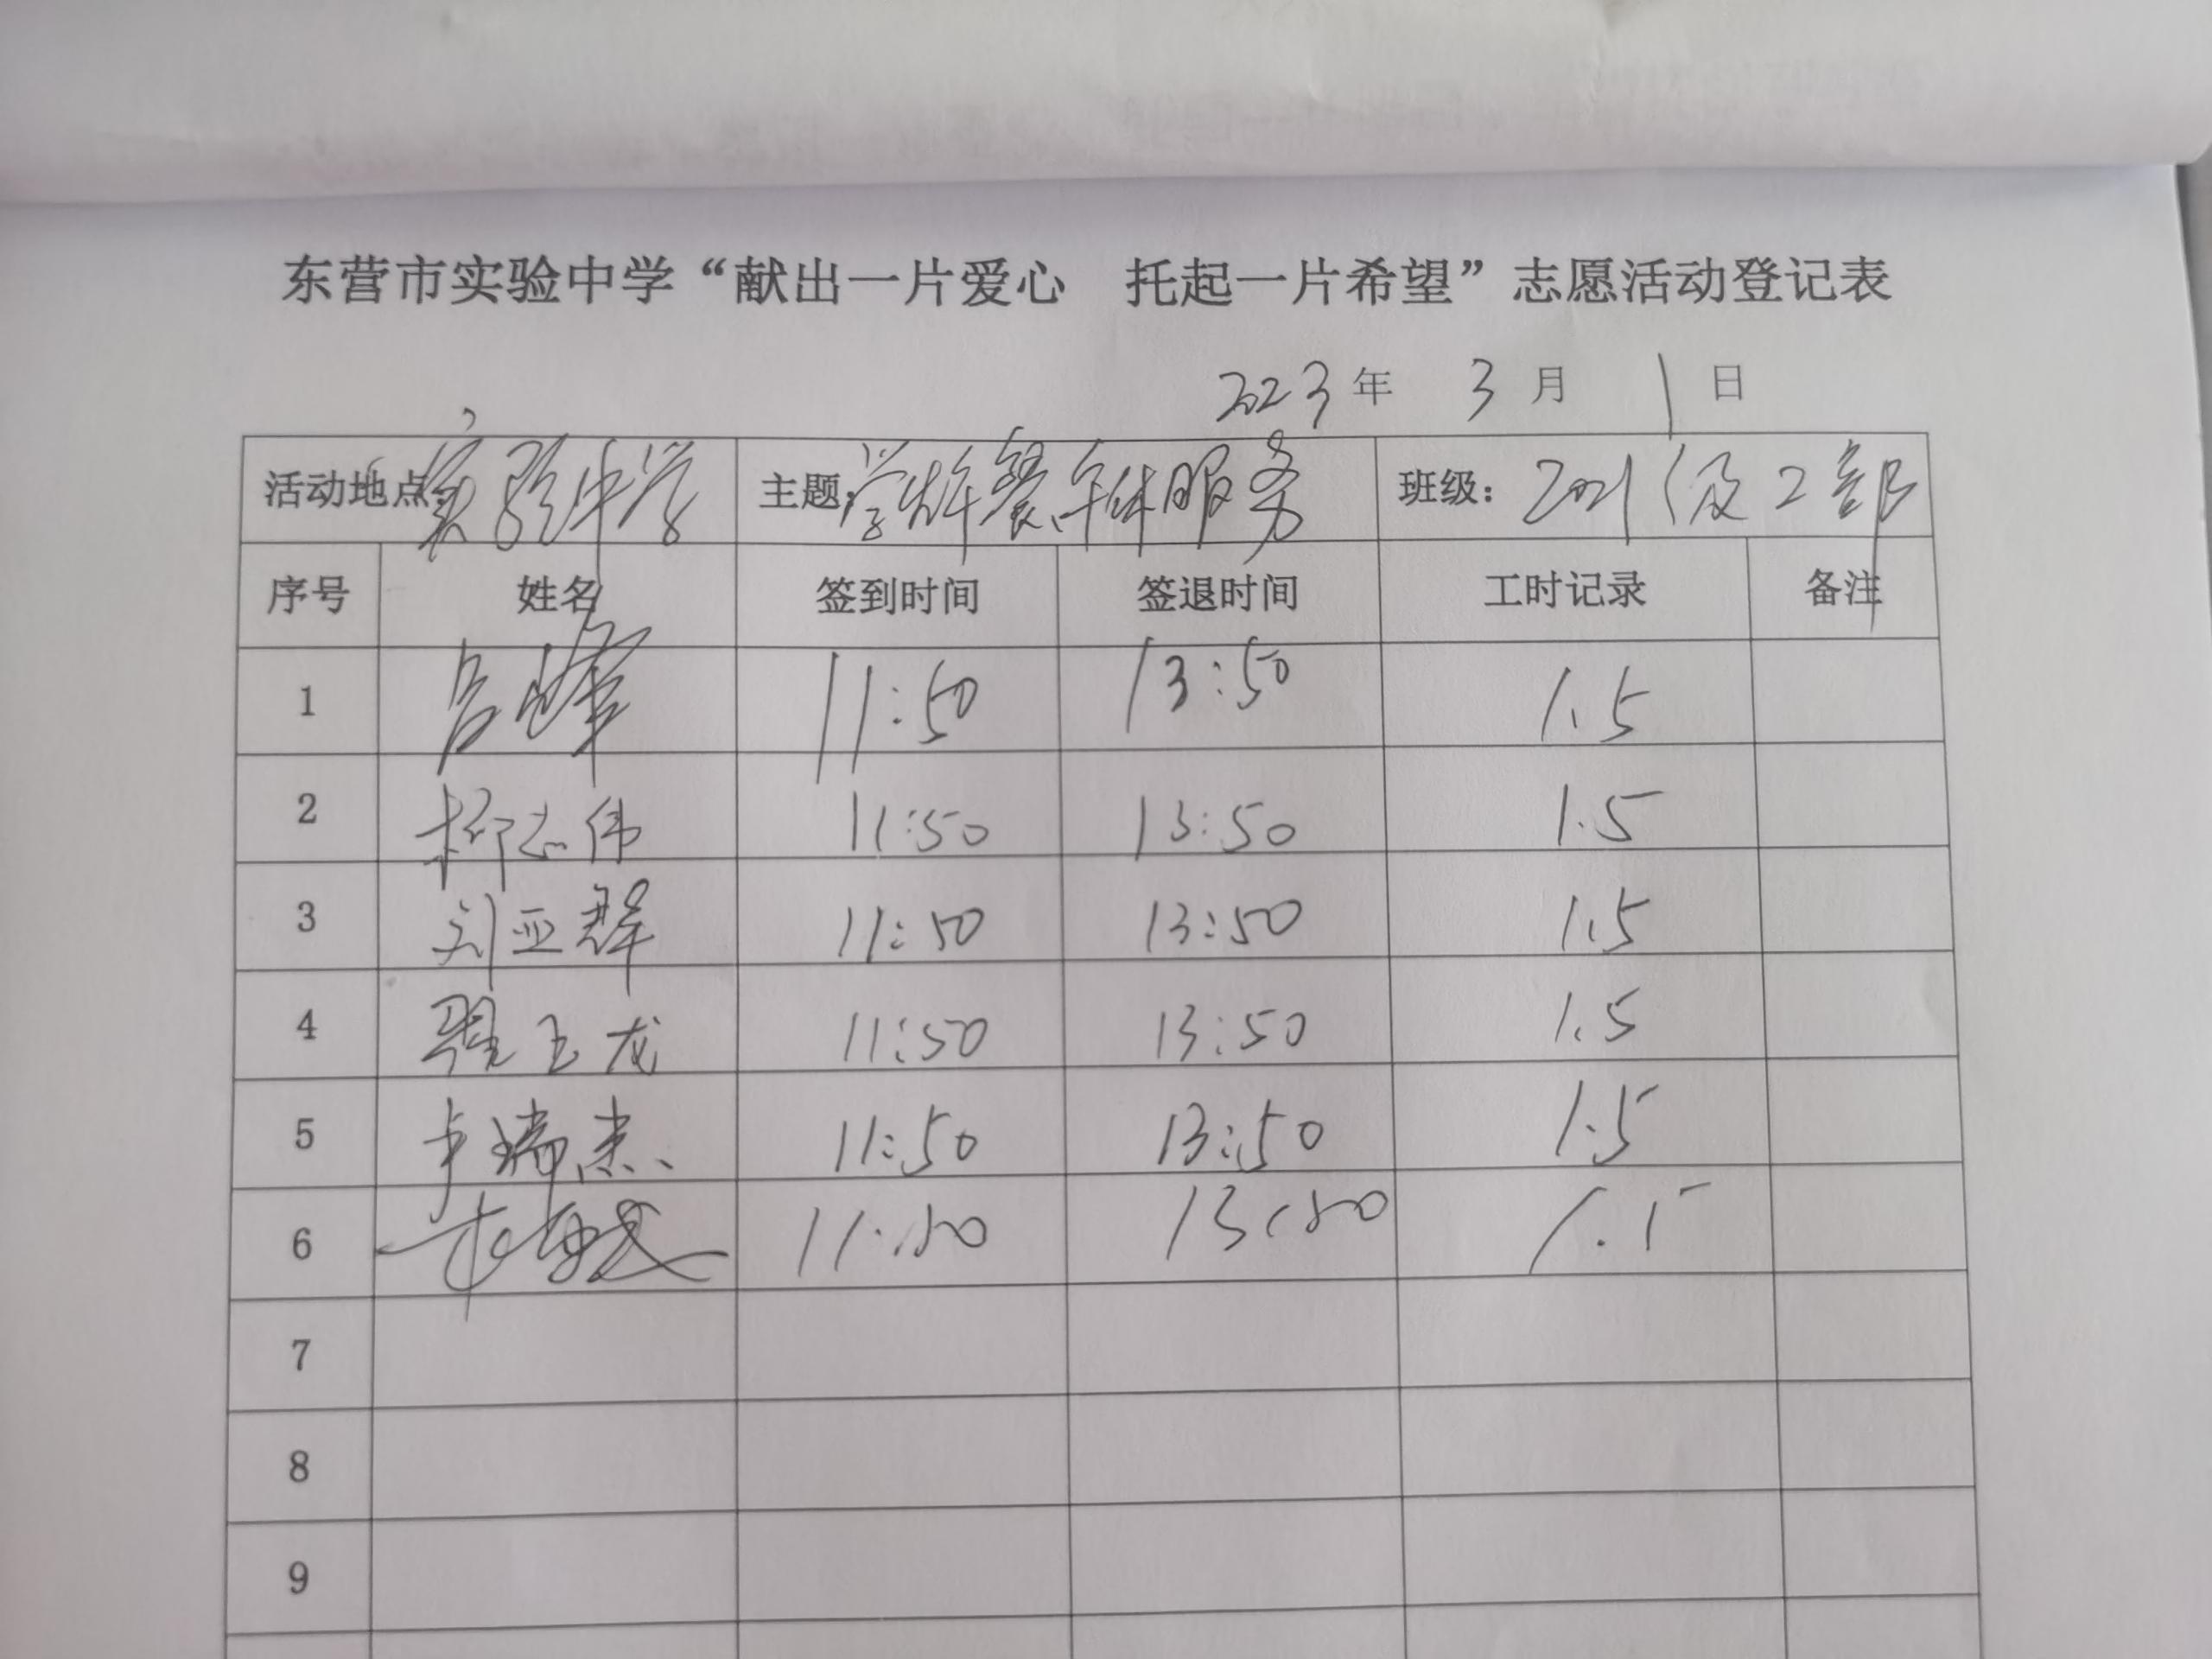 东营市实验中学“献出一片爱心 托起一片希望”志愿活动登记表
2023年 3月 1日
活动地点:实验中学 主题:学生午餐、午休服务 班级:2021级2部
序号 姓名 签到时间 签退时间 工时记录 备注
1 吕峰 11:50 13:50 1.5
2 柳志伟 11:50 13:50 1.5
3 刘亚群 11:50 13:50 1.5
4 翟玉龙 11:50 13:50 1.5
5 卞瑞杰 11:50 13:50 1.5
6 11:50 13:50 1.5
7
8
9